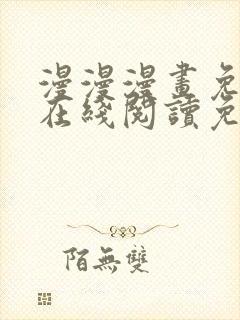 漫漫漫畫免
在綫閱讀免
陌無雙